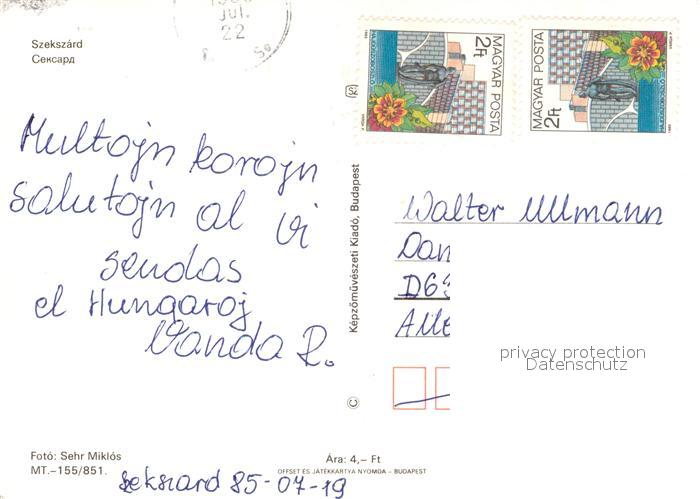 Szekszárd
Сексард
Jul.
22
MAGYAR POSTA
2Ft
MAGYAR POSTA
2Ft
Multojn korojn
salutojn al vi
sendas
el Hungaroj
Vanda R.
Képzőművészeti Kiadó, Budapest
Walter Ullmann
Dan
D6
Aile
privacy protection
Datenschutz
Fotó: Sehr Miklós
MT.–155/851.
Ára: 4,– Ft
OFFSET ÉS JÁTÉKKÁRTYA NYOMDA – BUDAPEST
Sekszard 85-07-19